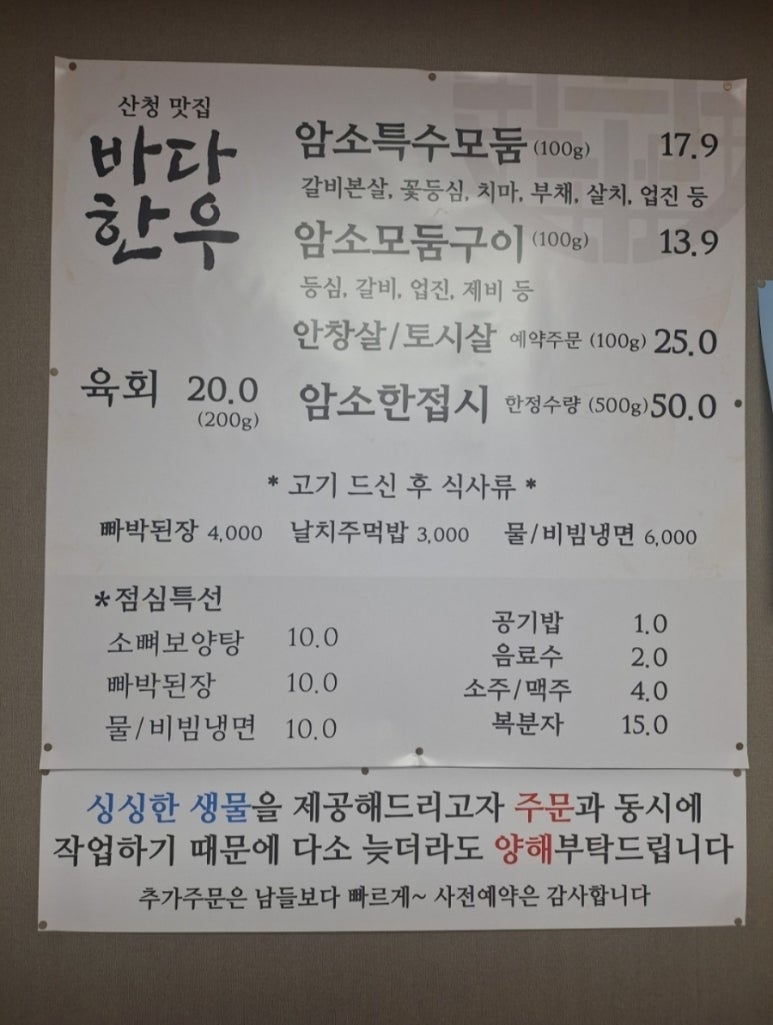 산청 맛집
바다
한우
암소특수모둠 (100g) 17.9
갈비본살, 꽃등심, 치마, 부채, 살치, 업진 등
암소모둠구이 (100g) 13.9
등심, 갈비, 업진, 제비 등
안창살/토시살 예약주문 (100g) 25.0
육회 20.0
(200g)
암소한접시 한정수량 (500g) 50.0
* 고기 드신 후 식사류 *
빠박된장 4,000 날치주먹밥 3,000 물/비빔냉면 6,000
*점심특선
소뼈보양탕 10.0
빠박된장 10.0
물/비빔냉면 10.0
공기밥 1.0
음료수 2.0
소주/맥주 4.0
복분자 15.0
싱싱한 생물을 제공해드리고자 주문과 동시에
작업하기 때문에 다소 늦더라도 양해부탁드립니다
추가주문은 남들보다 빠르게~ 사전예약은 감사합니다